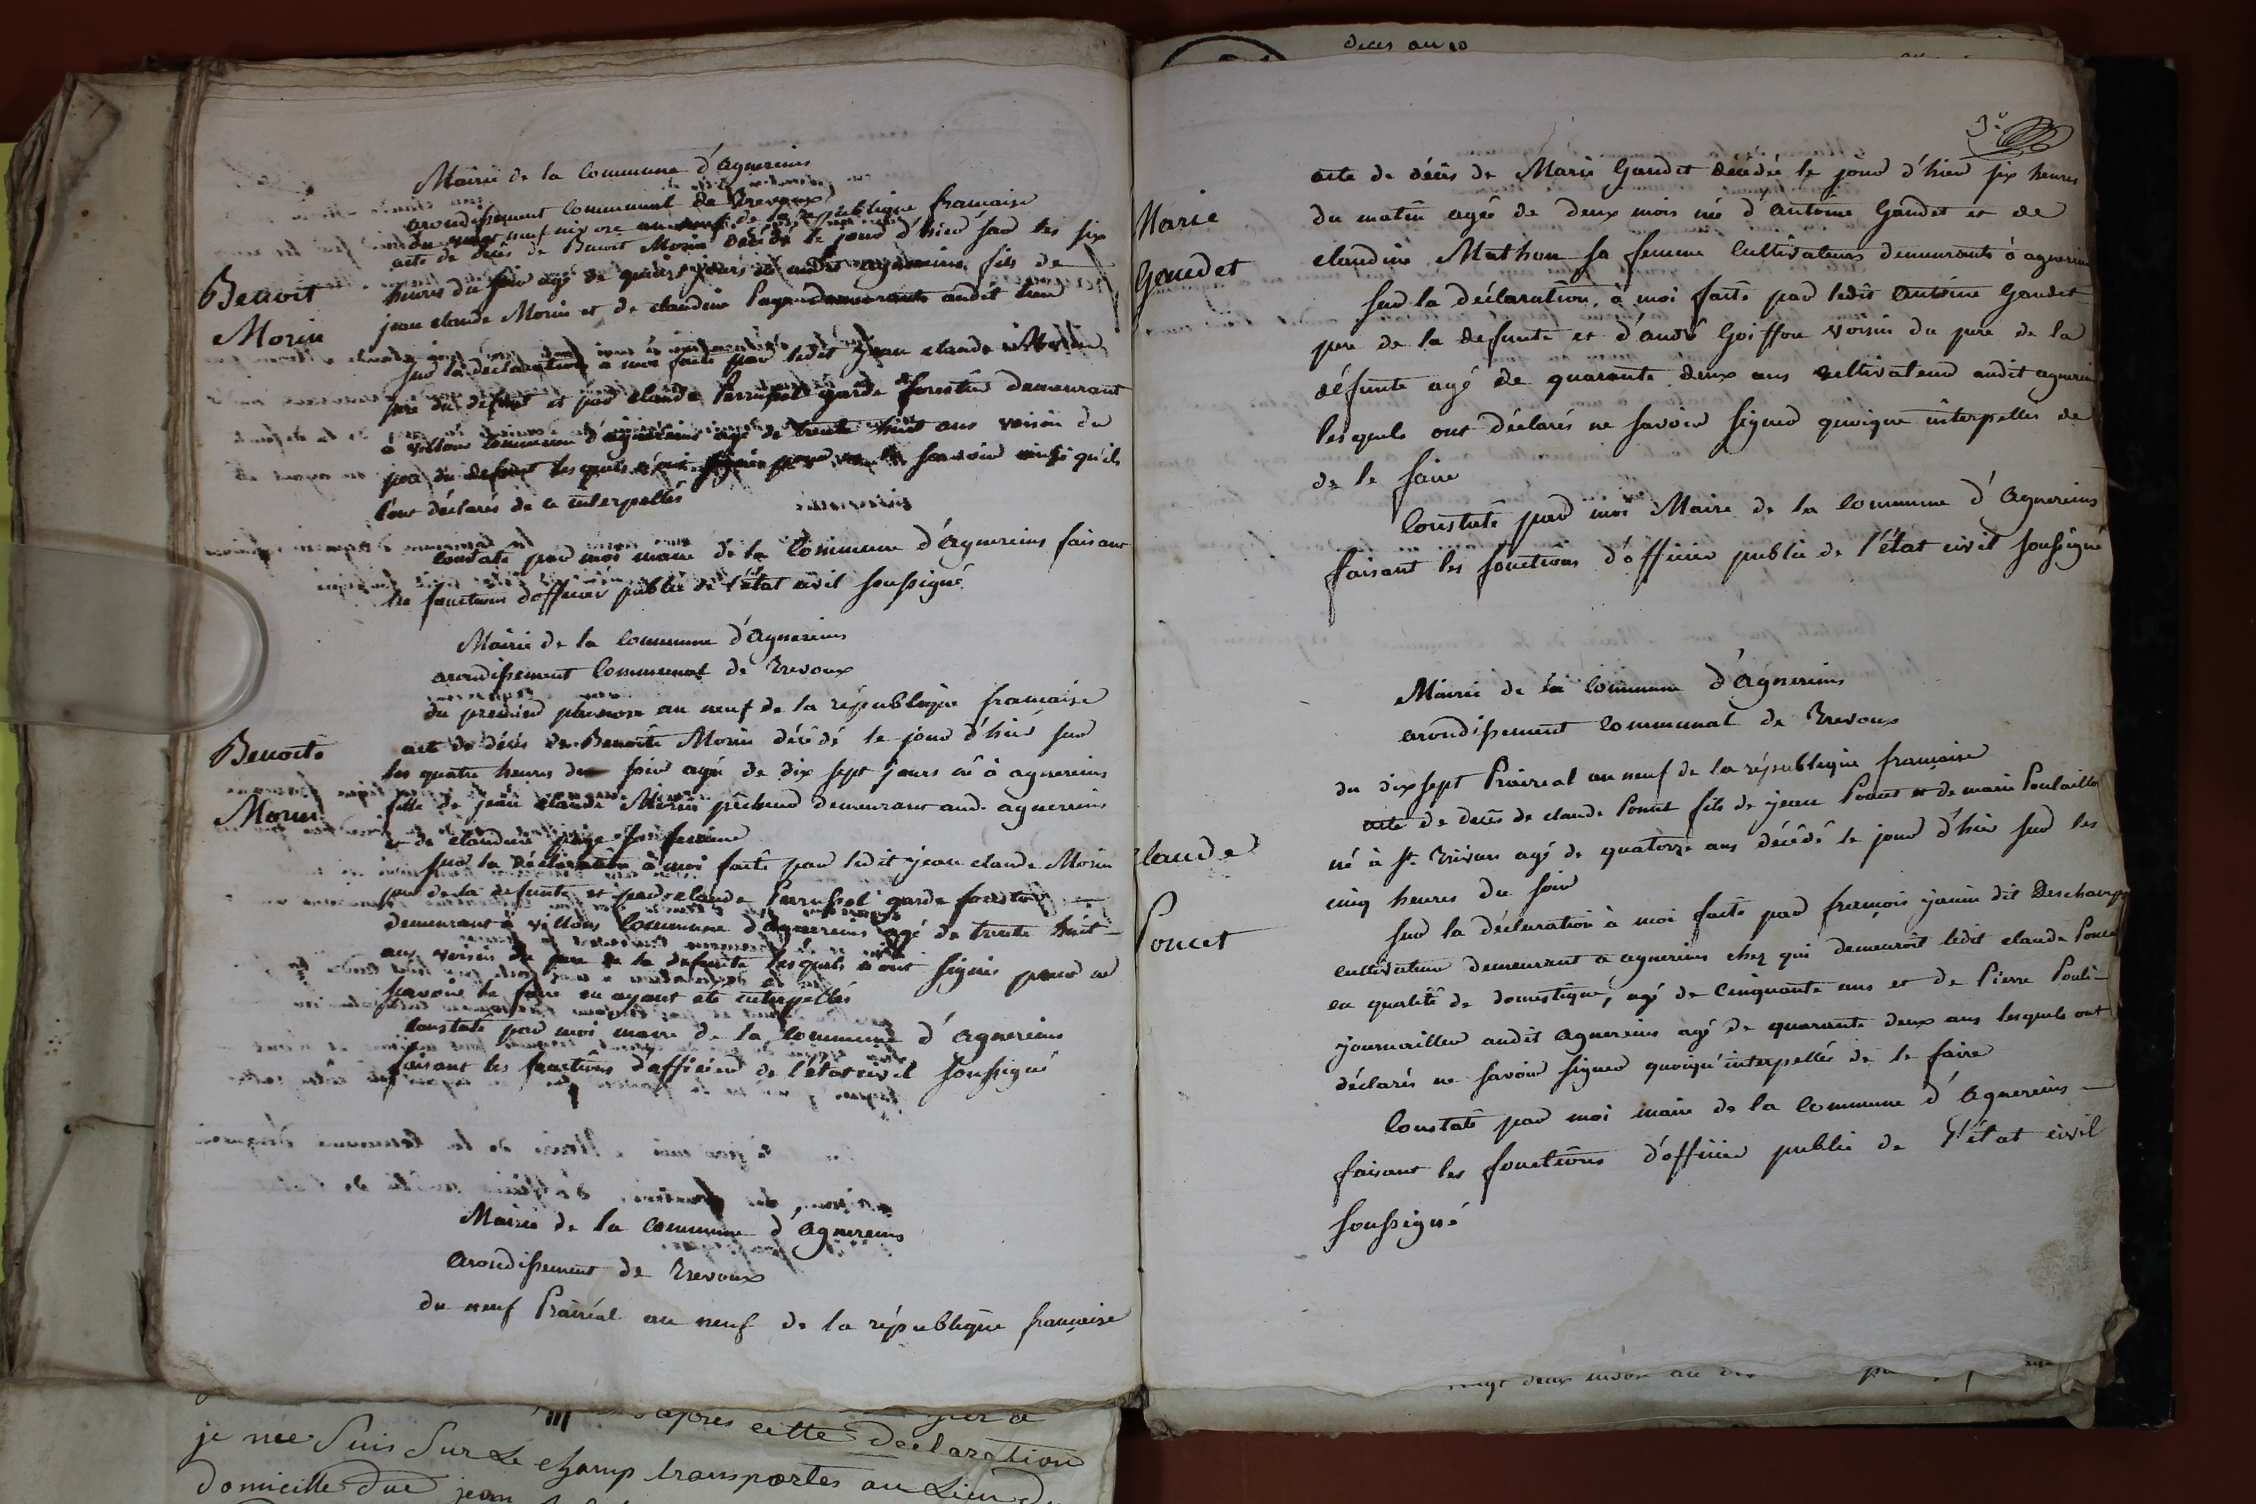 Mairie de la Commune d'agnereins
arondissement communal de Trevoux
du vingt neuf nivose an neuf de la république francaise
acte de décès de Benoit Morin décédé le jour d'hier sur les six
heures du soir agé de quinze jours né audit agnereins fils de
jean claude Morin et de claudine Page demeurants audit lieu
Benoit
Morin
sur la déclaration à moi faite par ledit jean claude Morin
pere du défunt et par claude Perrussel garde forestier demeurant
à villons commune d'agnereins agé de trente huit ans voisin du
pere du defunt lesquels n'ont signés pour ne le savoir ainsi qu'ils
l'ont déclarés de ce interpellés
Constaté par moi maire de la Commune d'agnereins faisant
les fonctions d'officier public de l'état civil soussigné
Mairie de la commune d'agnereins
arondissement Communal de Trevoux
du premier pluviose an neuf de la république francaise
Benoite
Morin
acte de décès de Benoite Morin décédé le jour d'hier sur
les quatre heures du soir agée de dix sept jours né à agnereins
fille de jean claude Morin pecheur demeurant aud. agnereins
et de claudine page sa femme
sur la déclaration à moi faite par ledit jean claude Morin
pere de la defunte et par claude Perrussel garde forestier
demeurant à villons Commune d'agnereins agé de trente huit
ans voisin du pere de la defunte lesquels n'ont signés pour ne
savoir le faire en ayant été interpellés
Constaté par moi maire de la Commune d'agnereins
faisant les fonctions d'officier de l'état civil soussigné
Mairie de la commune d'agnereins
arondissement de Trevoux
du neuf Prairéal an neuf de la république française
deces an 10
3e
Marie
Gaudet
acte de décès de Marie Gaudet décédée le jour d'hier six heures
du matin agée de deux mois née d'antoine Gaudet et de
claudine Mathon sa femme cultivateurs demeurants à agnereins
sur la déclaration à moi faite par ledit antoine Gaudet
pere de la defunte et d'andré Goiffon voisin du pere de la
défunte agé de quarante deux ans cultivateur audit agnereins
lesquels ont déclarés ne savoir signer quoique interpellés de
de le faire
Constaté par moi Maire de la commune d'agnereins
faisant les fonctions d'officier public de l'état civil soussigné
Mairie de la commune d'agnereins
arondissement communal de Trevoux
du dix sept Prairéal an neuf de la république française
claude
Poncet
acte de decès de claude Poncet fils de jean Poncet et de marie Poulaillon
né à St Trivier agé de quatorze ans décédé le jour d'hier sur les
cinq heures du soir
sur la déclaration à moi faite par françois janin dit Deschamps
cultivateur demeurant a agnereins chez qui demeuroit ledit claude Poncet
en qualité de domestique, agé de cinquante ans et de Pierre Pouli-
journaillier audit agnereins agé de quarante deux ans lesquels ont
déclarés ne savoir signer quoiqu'interpellés de le faire
Constaté par moi maire de la commune d'agnereins
faisant les fonctions d'officier public de l'état civil
soussigné
vingt deux nivose an dix
d'apres cette declaration
je me suis sur Le champ transportes au Lieu du
domicille due jean